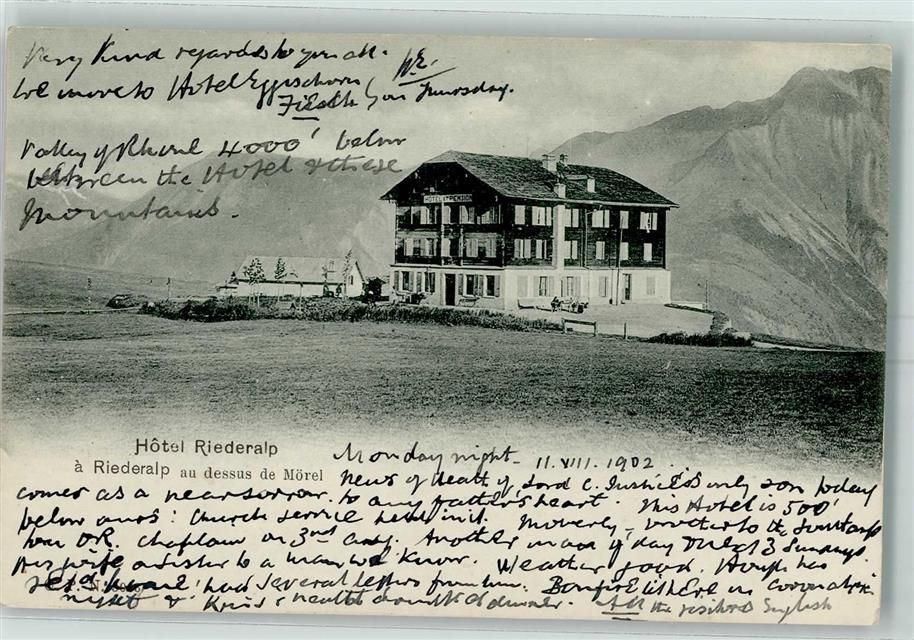 Very Kind regards to you all.
We move to Hotel Eggischorn W.E.
Fiesch on Thursday.
Valley of Rhone 4000' below
between the Hotel & these
mountains.
HÔTEL ET PENSION
Hôtel Riederalp
à Riederalp au dessus de Mörel
Monday night - 11.VIII.1902
News of death of Lord C. Justice's only son today
comes as a near sorrow to any father's heart. This Hotel is 500'
below ours: Church service held in it.
our chaplain on 3rd Aug. Another man of day 3 Sundays.
His wife a sister to a man we know. Weather good. Hough has
had several letters from him. Bonfire lit here on Coronation
night & King's health drunk at dinner. All the visitors English